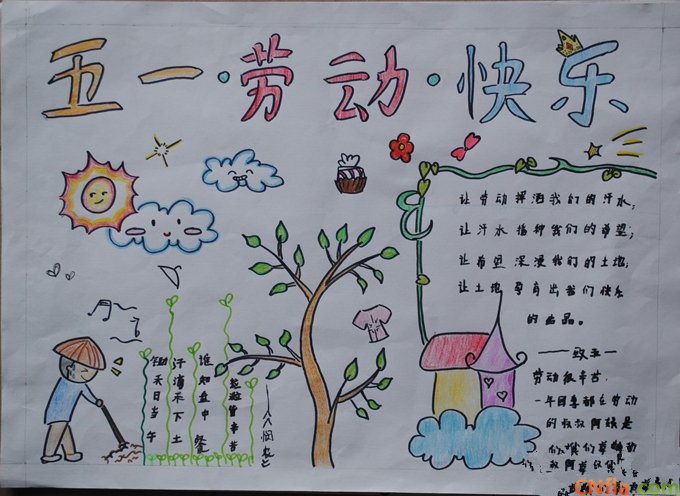 五一·劳动·快乐
让劳动挥洒我们的汗水;
让汗水播种我们的希望;
让希望浸漫我们的土地;
让土地孕育出我们快乐
的出品。
——致五一
劳动很辛苦,
一年四季都在劳动
的叔叔阿姨是
锄禾日当午
汗滴禾下土
谁知盘中餐
粒粒皆辛苦
——《悯农》
CNfla.com